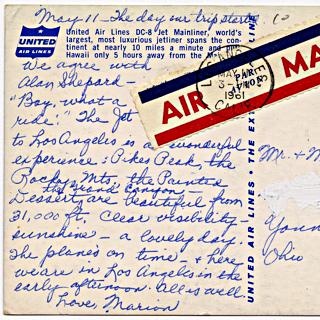 May 11 - The day our trip starts
UNITED
AIR LINES
United Air Lines DC-8 Jet Mainliner, world's
largest, most luxurious jetliner spans the con-
tinent at nearly 10 miles a minute and
Hawaii only 5 hours away from the
We agree with
Alan Shepard -
"Boy, what a
ride." The Jet
to Los Angeles is a wonderful
experience: Pikes Peak, the
Rockies Mts, the Painted
the Grand Canyon
Dessert, are beautiful from
31,000 ft. Clear visibility
sunshine - a lovely day.
The plane's on time - & here
we are in Los Angeles in the
early afternoon. All is well
Love, Marion
LOS ANGELES
MAY
3 PM
1961
CALIF.
AIR MA
UNITED AIR LINES • THE EX
AIR LINES
Mr. + M
Youn
Ohio